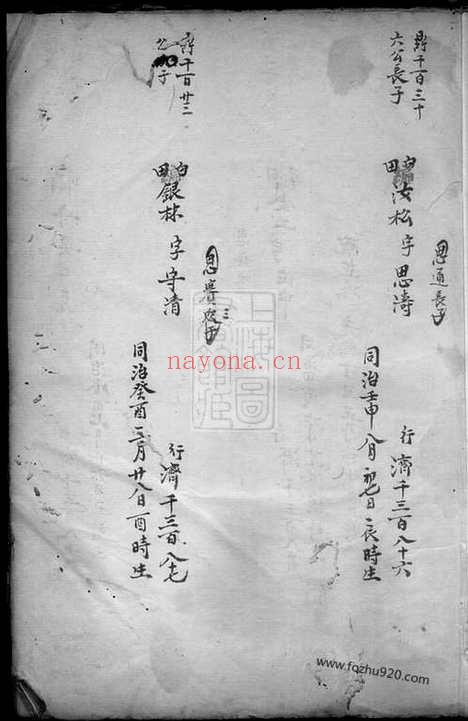 鼎千百三十
六公長子
白田汝松字思濤
思通長子
行濟千三百八十六
同治壬申八月初七日辰時生
千百廿三
公 子
白田銀林字守清
思賡三子
行濟千三百八七
同治癸酉二月廿八日酉時生
上海圖
nayona.cn
www.fqzhu920.com